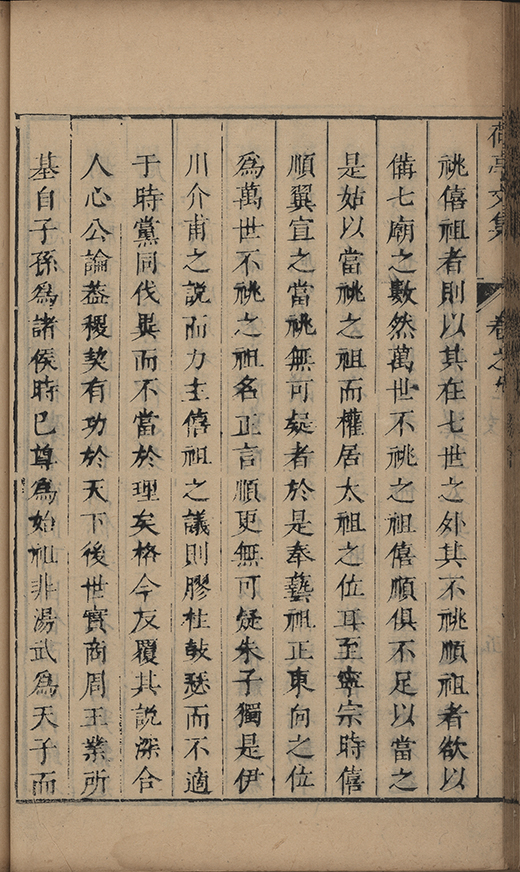 荷亭文集 卷之
祧僖祖者則以其在七世之外其不祧順祖者欲以
備七廟之數然萬世不祧之祖僖順俱不足以當之
是姑以當祧之祖而權居太祖之位耳至寧宗時僖
順翼宣之當祧無可疑者於是奉藝祖正東向之位
為萬世不祧之祖名正言順更無可疑朱子獨是伊
川介甫之說而力主僖祖之議則膠柱鼓瑟而不適
于時黨同伐異而不當於理矣格今反覆其說深合
人心公論葢稷契有功於天下後世實商周王業所
基自子孫為諸侯時已尊為始祖非湯武為天子而